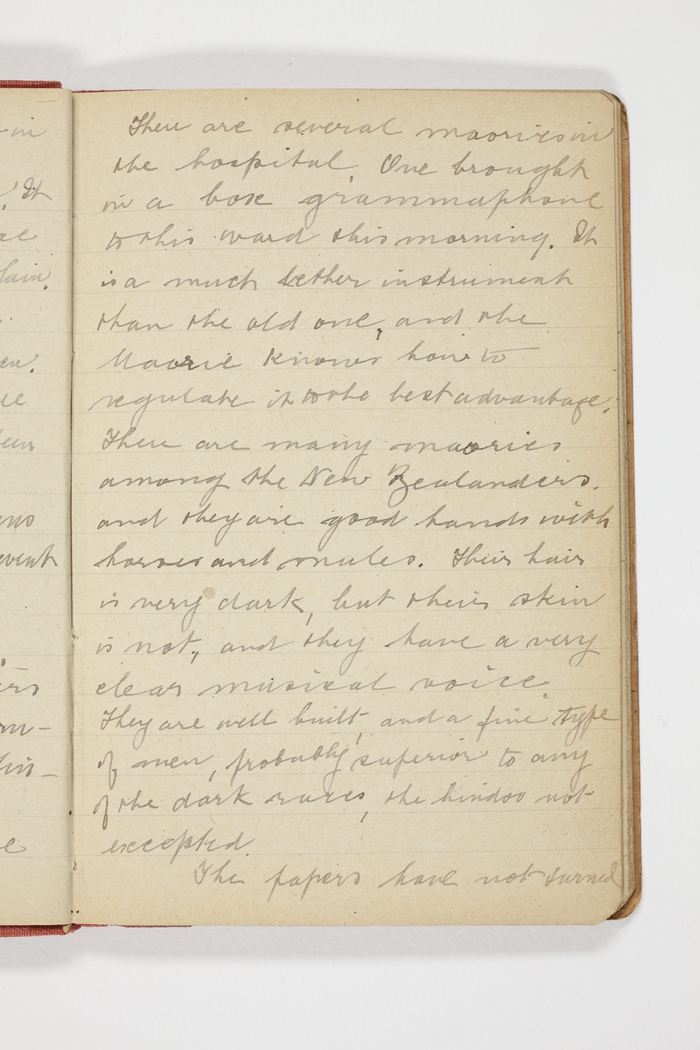 There are several maories in
the hospital. One brought
in a box grammaphone
to this ward this morning. It
is a much better instrument
than the old one, and the
Maorie knows how to
regulate it to the best advantage.
There are many maories
among the New Zealanders.
and they are good hands with
horses and mules. Their hair
is very dark, but their skin
is not, and they have a very
clear musical voice.
They are well built, and a fine type
of men, probably superior to any
of the dark races, the hindoo not
excepted.
The papers have not turned